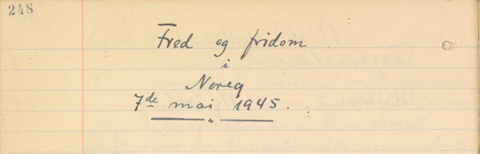 248
Fred og fridom
i
Noreg
7de mai 1945.